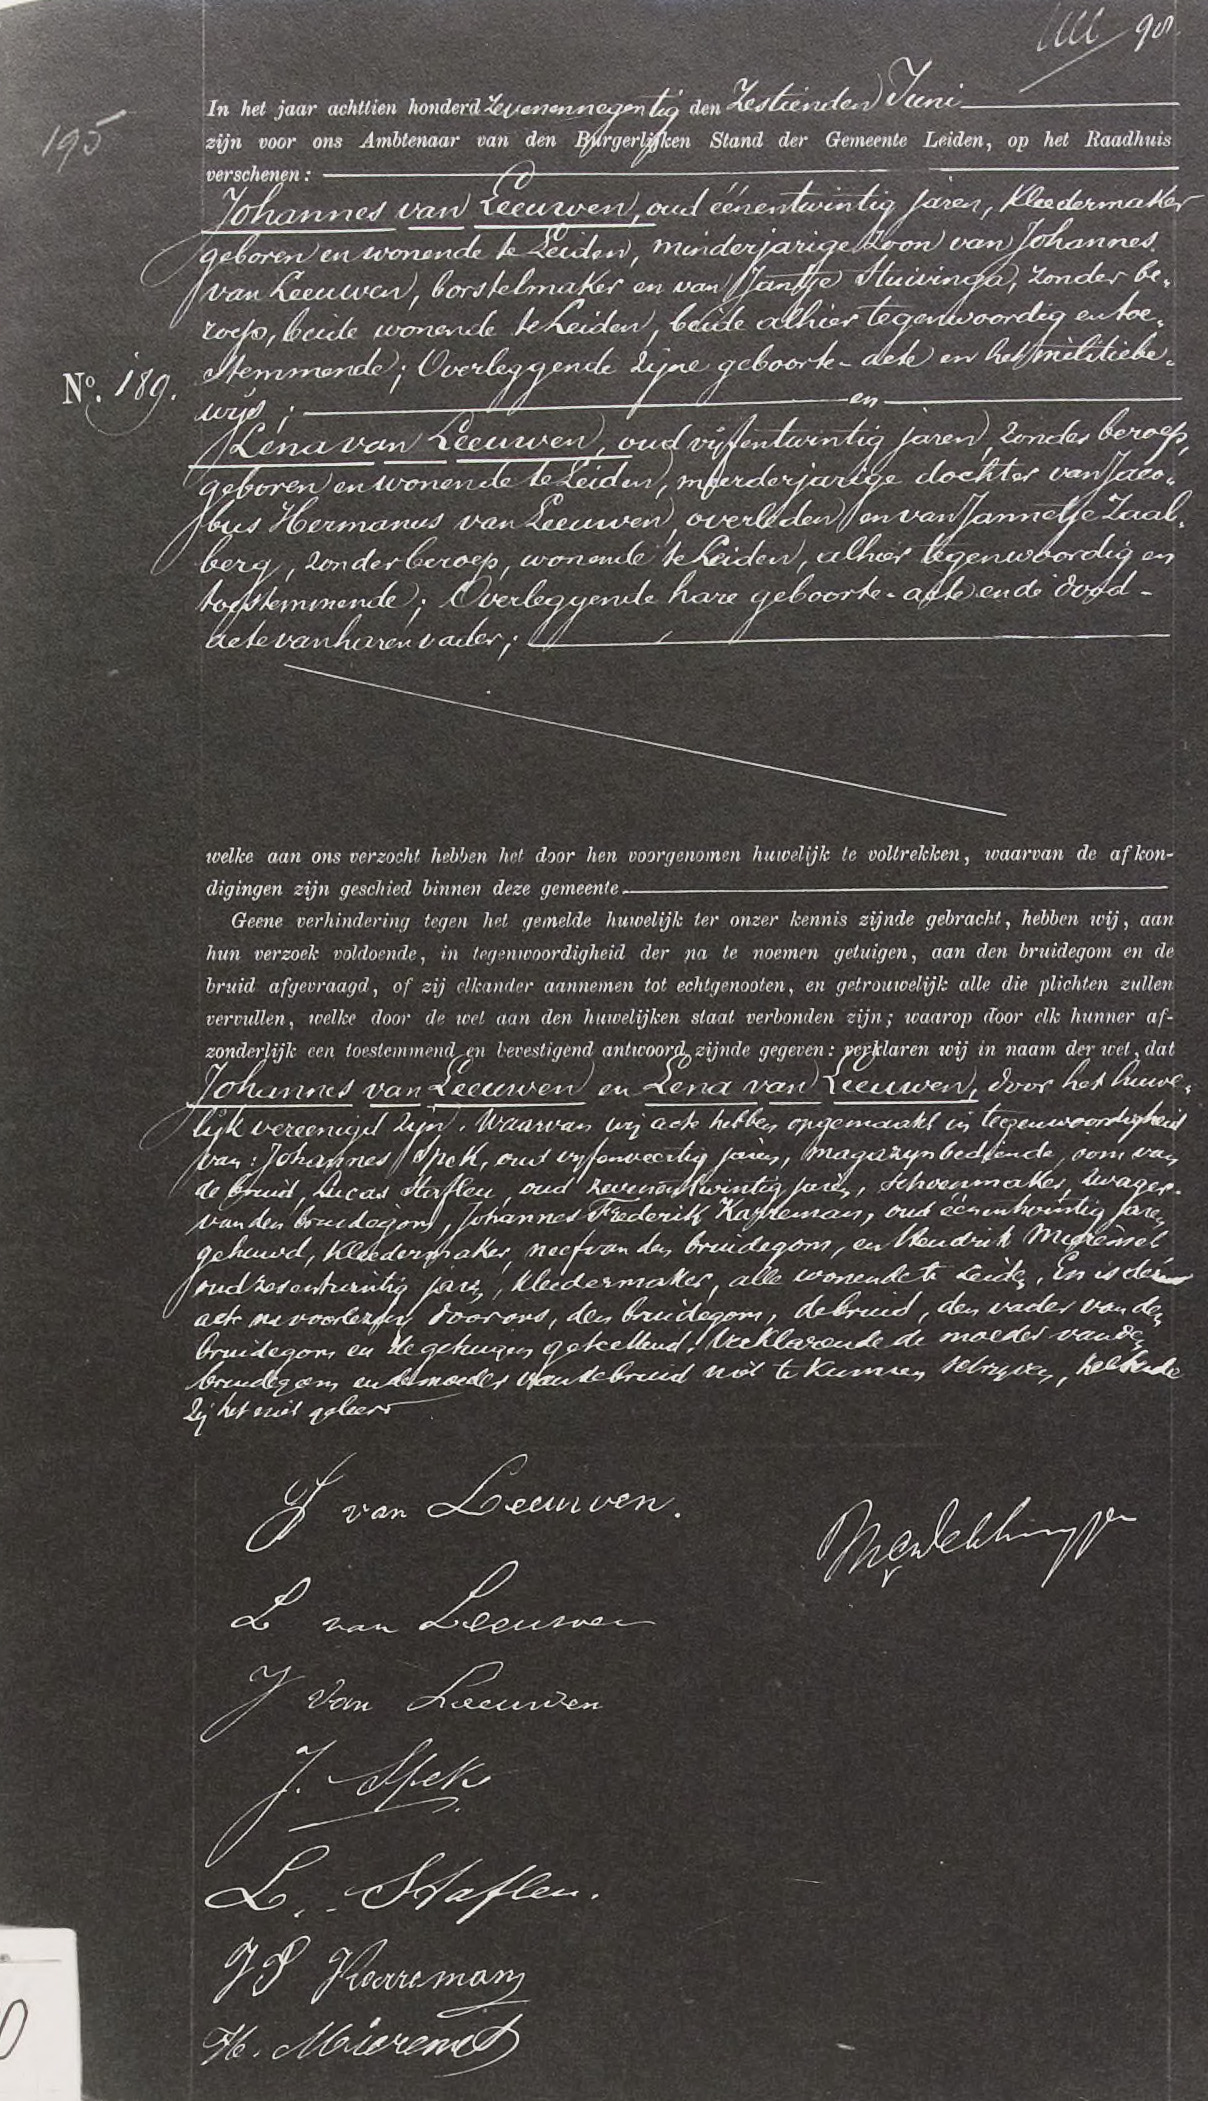 98
195
In het jaar achttien honderd zevenennegentig den Zestienden Juni
zijn voor ons Ambtenaar van den Burgerlijken Stand der Gemeente Leiden, op het Raadhuis
verschenen:
Johannes van Leeuwen, oud éénentwintig jaren, kleedermaker
geboren en wonende te Leiden, minderjarige zoon van Johannes
van Leeuwen, borstelmaker en van Jantje Stuivinga, zonder be-
roep, beide wonende te Leiden, beide alhier tegenwoordig en toe-
stemmende; Overleggende zijne geboorte-acte en het militiebe-
No. 189.
wijs; en
Lena van Leeuwen, oud vijfentwintig jaren, zonder beroep,
geboren en wonende te Leiden, meerderjarige dochter van Jaco-
bus Hermanus van Leeuwen, overleden en van Jannetje Zaal-
berg, zonder beroep, wonende te Leiden, alhier tegenwoordig en
toestemmende; Overleggende hare geboorte-acte en de dood-
acte van haren vader;
welke aan ons verzocht hebben het door hen voorgenomen huwelijk te voltrekken, waarvan de afkon-
digingen zijn geschied binnen deze gemeente
Geene verhindering tegen het gemelde huwelijk ter onzer kennis zijnde gebracht, hebben wij, aan
hun verzoek voldoende, in tegenwoordigheid der na te noemen getuigen, aan den bruidegom en de
bruid afgevraagd, of zij elkander aannemen tot echtgenooten, en getrouwelijk alle die plichten zullen
vervullen, welke door de wet aan den huwelijken staat verbonden zijn; waarop door elk hunner af-
zonderlijk een toestemmend en bevestigend antwoord zijnde gegeven: verklaren wij in naam der wet, dat
Johannes van Leeuwen en Lena van Leeuwen, door het huwe-
lijk vereenigd zijn. Waarvan wij acte hebben opgemaakt in tegenwoordigheid
van: Johannes Spek, oud vijfenveertig jaren, magazijnbediende, oom van
de bruid, Lucas Stafleu, oud zevenentwintig jaren, schoenmaker, zwager
van den bruidegom, Johannes Frederik Karreman, oud éénentwintig jaren
gehuwd, kleedermaker, neef van den bruidegom, en Hendrik Mieremet
oud zesentwintig jaren, kleedermaker, alle wonende te Leiden. En is deze
acte na voorlezing door ons, den bruidegom, de bruid, den vader van den
bruidegom en de getuigen geteekend. Verklarende de moeder van den
bruidegom en de moeder van de bruid niet te kunnen schrijven, hebbende
zij het niet geleerd
J van Leeuwen.
L van Leeuwen
J van Leeuwen
J. Spek
L. Stafleu.
J F Karreman
H. Mieremet